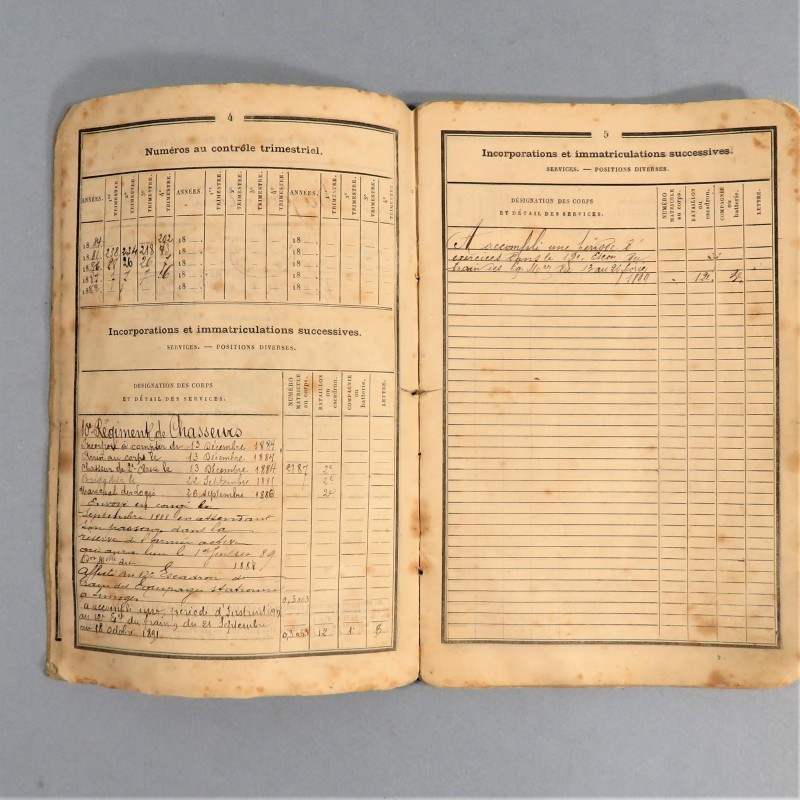 4
Numéros au contrôle trimestriel.
ANNÉES. 1er TRIMESTRE. 2e TRIMESTRE. 3e TRIMESTRE. 4e TRIMESTRE. ANNÉES. 1er TRIMESTRE. 2e TRIMESTRE. 3e TRIMESTRE. 4e TRIMESTRE. ANNÉES. 1er TRIMESTRE. 2e TRIMESTRE. 3e TRIMESTRE. 4e TRIMESTRE.
1884 202 18 18
18 218 224 218 18 18
1886 27 26 26 18 18
1887 7 7 7 18 18
1888 18 18
Incorporations et immatriculations successives.
SERVICES. — POSITIONS DIVERSES.
DÉSIGNATION DES CORPS ET DÉTAIL DES SERVICES. NUMÉRO MATRICULE au corps. BATAILLON ou escadron. COMPAGNIE ou batterie. LETTRE.
10e Régiment de Chasseurs
Incorporé à compter du 13 Décembre 1884
Arrivé au corps le 13 Décembre 1884
Chasseur de 2e Classe le 13 Décembre 1884 2187 2e
Brigadier le 22 Septembre 1885 2e
Maréchal des logis 26 Septembre 1886 2e
Envoyé en congé le
Septembre 1888 en attendant
son passage dans la
réserve de l'armée active
qui aura lieu le 1er Juillet 89
1888
Affecté au 12e Escadron du
Train des Equipages stationné
à Limoges
a accompli une période d'Instruction
au 12e Eon du train, du 21 Septembre
au 18 Octobre 1891. 12 1
5
Incorporations et immatriculations successives.
SERVICES. — POSITIONS DIVERSES.
DÉSIGNATION DES CORPS ET DÉTAIL DES SERVICES. NUMÉRO MATRICULE au corps. BATAILLON ou escadron. COMPAGNIE ou batterie. LETTRE.
A accompli une période d'
exercices dans le 12e Escon du
train des du 13 au 26